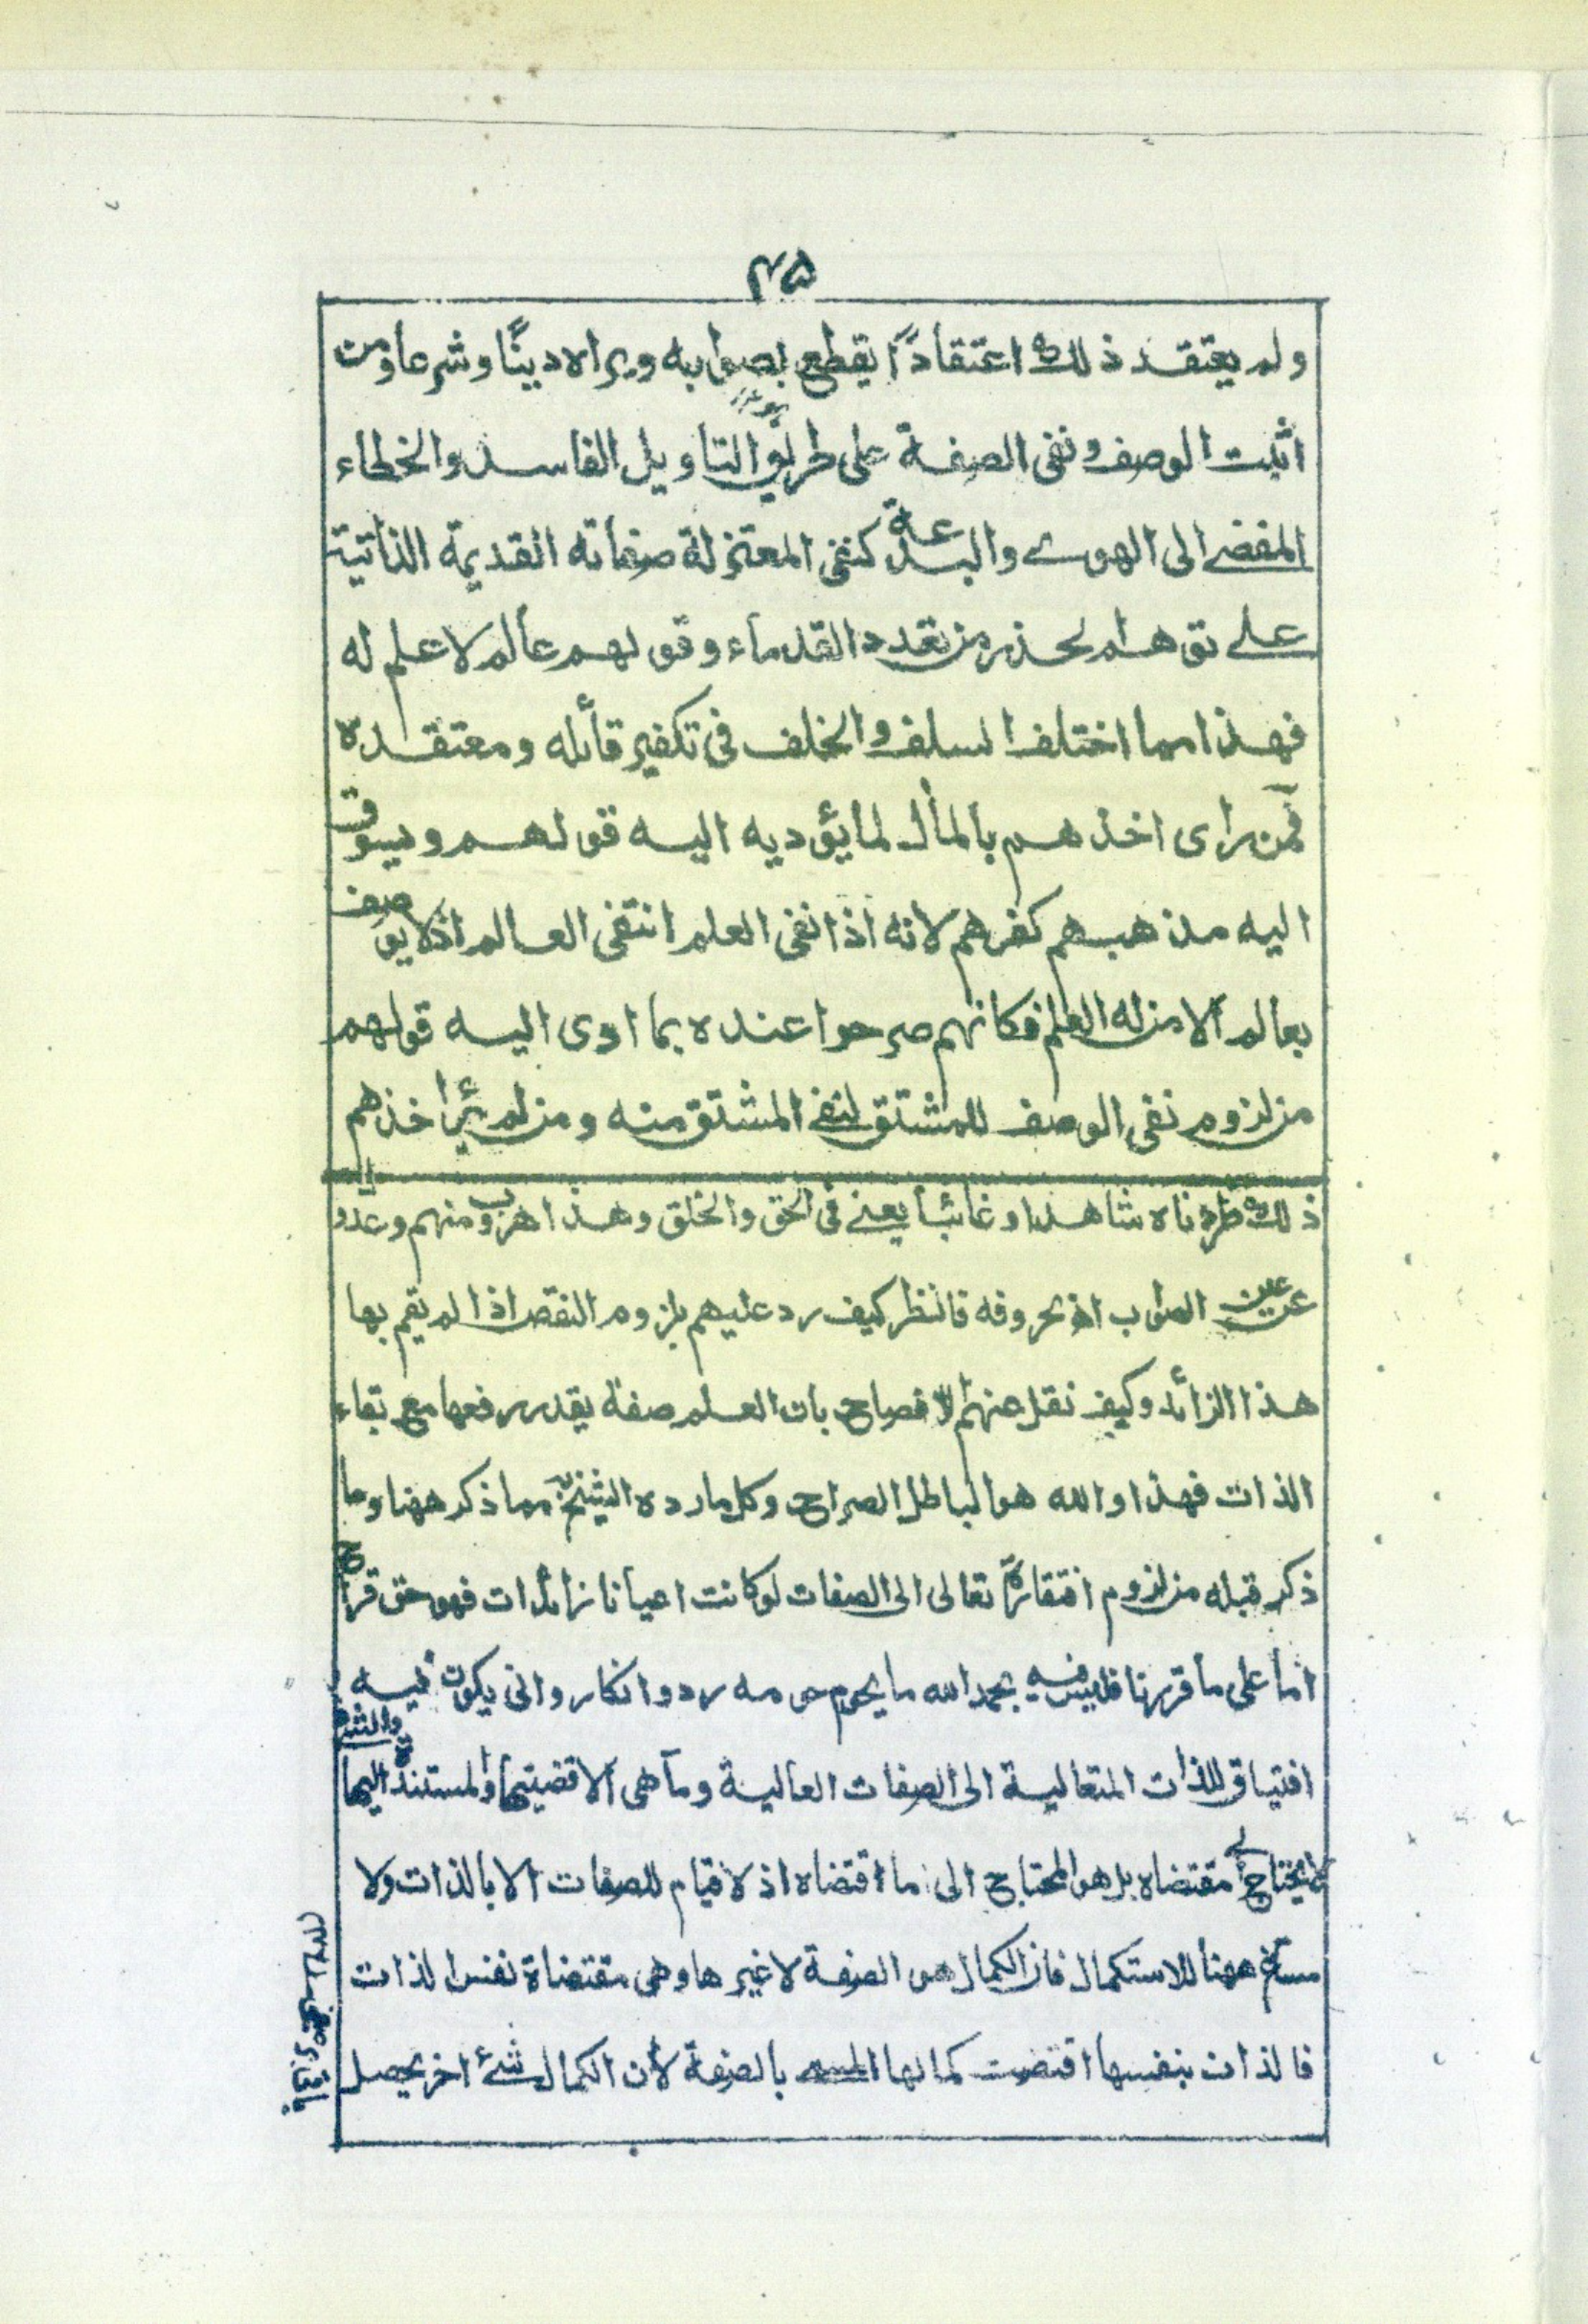 ٤٥
ولم يعتقد ذلك اعتقاداً يقطع بصوابه ويراه دينًا وشرعاً ومن
اثبت الوصف ونفى الصفة على طريق التاويل الفاسد والخطاء
المفضے الى الهوى والبدعة كنفى المعتزلة صفاته القديمة الذاتية
علے توهم لحذر من تعدد القدماء وقولهم عالم لا علم له
فهذا مما اختلف السلف والخلف فى تكفير قائله ومعتقده
فمن راى اخذهم بالمآل لما يؤديه اليه قولهم ويسوق
اليه مذهبهم كفرهم لانه اذا نفى العلم انتفى العالم اذ لا يوصف
بعالم الا من له العلم فكانهم صرحوا عنده بما ادى اليه قولهم
من لزوم نفى الوصف للمشتق لنفے المشتق منه ومن لم ير اخذهم
ذلك طردناه شاهدا وغائبا يعنے فى الحق والخلق وهذا هروب منهم وعدول
عن عين الصواب اھ بحروفه فانظر كيف رد عليهم بلزوم النقص اذا لم يقم بها
هذا الزائد وكيف نقل عنهم الافصاح بان العلم صفة يقدر رفعها مع بقاء
الذات فهذا والله هو الباطل الصراح وكل ما رده الشيخ مما ذكر ههنا وما
ذكر قبله من لزوم افتقاره تعالى الى الصفات لو كانت اعيانا زائدات فهو حق قراح
اما على ما قررنا فليس فيه بحمد الله ما يحوم حومه رد وانكار وانى يكون فيه
افتياق للذات المتعالية الى الصفات العالية وما هى الا قضيتها والمستندة اليها والشئ
لا يحتاج الى مقتضاه بل هو المحتاج الى ما اقتضاه اذ لا قيام للصفات الا بالذات ولا
مساغ ههنا للاستكمال فان الكمال هو الصفة لا غيرها وهى مقتضاة نفس الذات
فالذات بنفسها اقتضت كمالها بالصفة لان الكمال شئ اخر يحصل